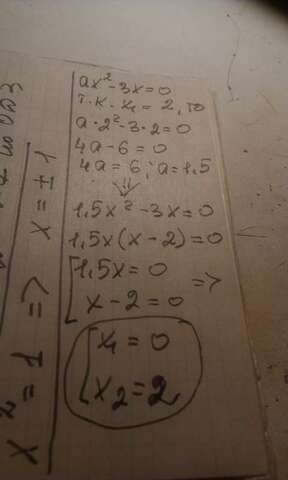 ax² - 3x = 0
т.к. x₁ = 2, то
a·2² - 3·2 = 0
4a - 6 = 0
4a = 6; a = 1,5
⇓
1,5x² - 3x = 0
1,5x(x - 2) = 0
[1,5x = 0
x - 2 = 0 =>
[x₁ = 0
x₂ = 2
x² = 1 => x = ±1